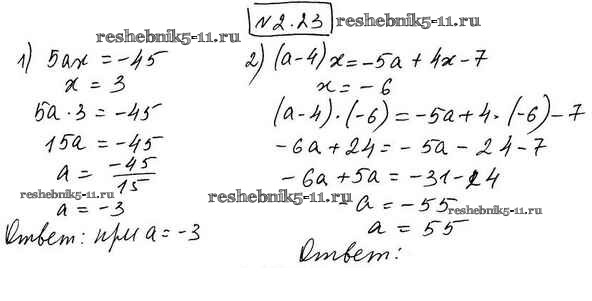 №2.23
reshebnik5-11.ru
reshebnik5-11.ru
1) 5ax = -45
x = 3
5a · 3 = -45
15a = -45
a = -45/15
reshebnik5-11.ru
a = -3
Ответ: при a = -3
2) (a-4)x = -5a + 4x - 7
x = -6
(a-4) · (-6) = -5a + 4 · (-6) - 7
-6a + 24 = -5a - 24 - 7
-6a + 5a = -31 - 24
reshebnik5-11.ru
-a = -55
reshebnik5-11.ru
a = 55
Ответ: